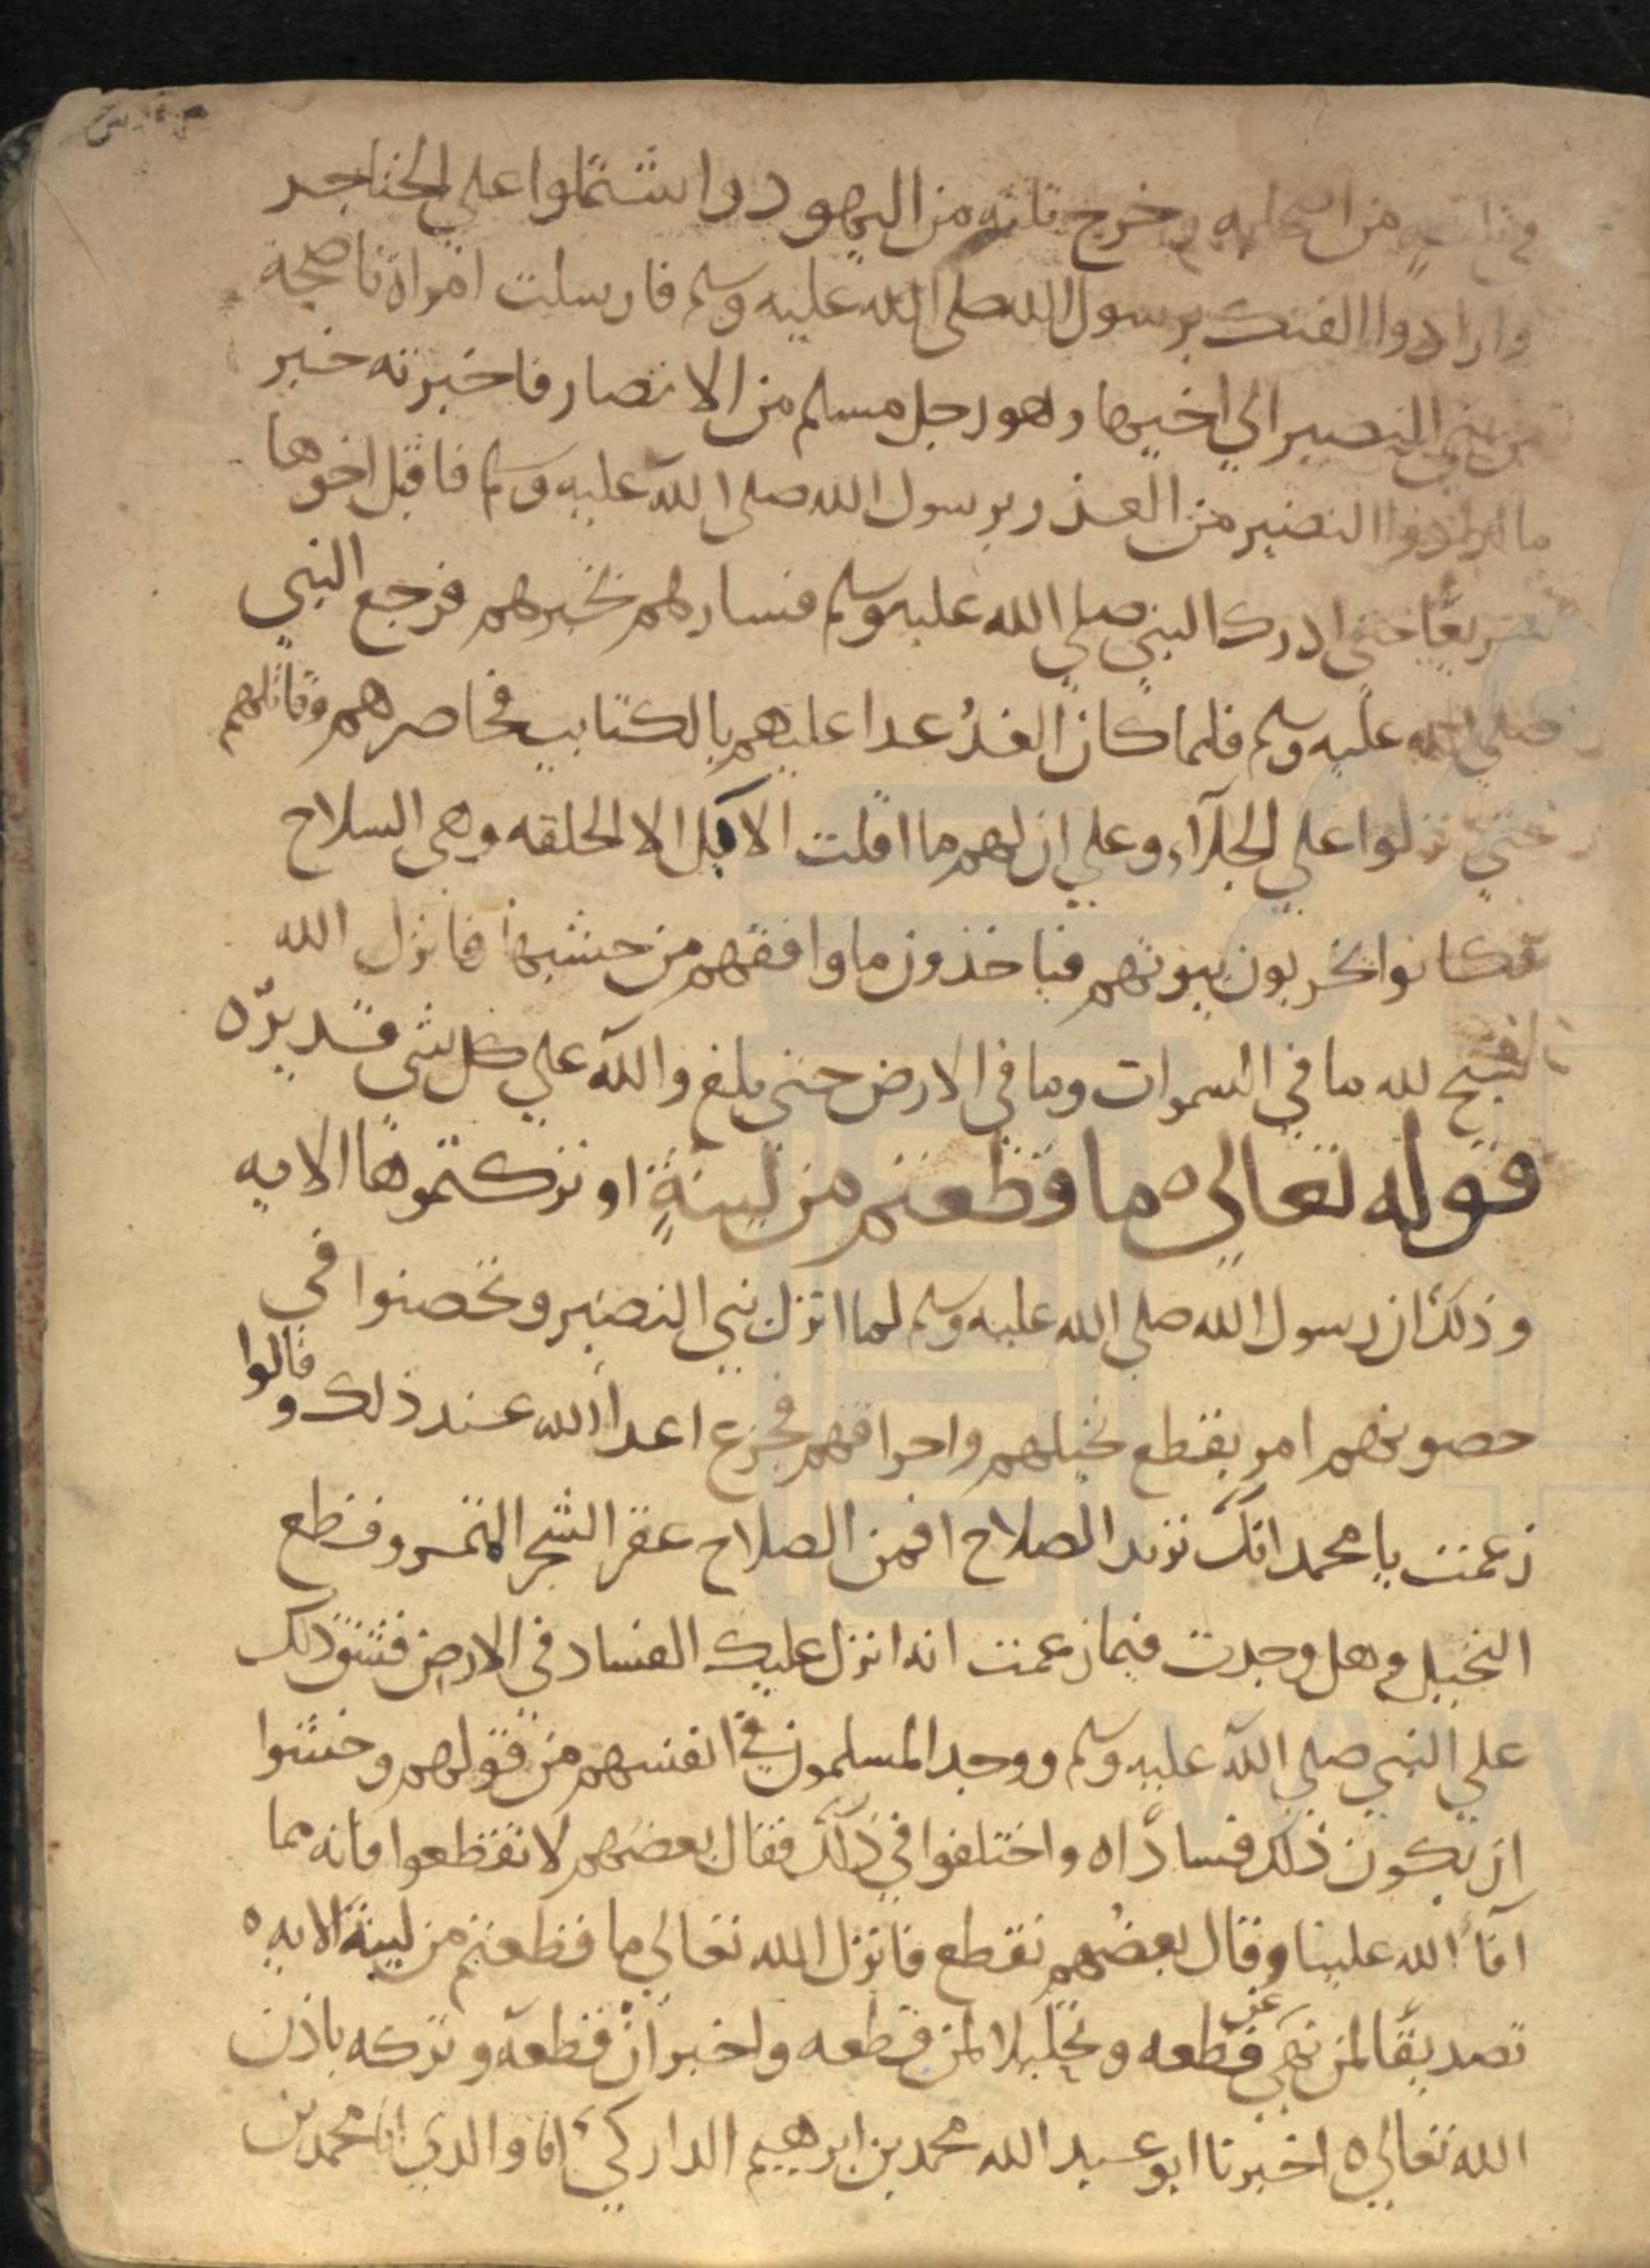 من اصحابه وخرج ثلثه من اليهود واشتملوا على الخناجر
وارادوا الفتك برسول الله صلى الله عليه وسلم فارسلت امراة ناصحة
من بني النضير الي اخيها وهو رجل مسلم من الانصار فاخبرته خبر
ما ارادوا النضير من الغدر برسول الله صلى الله عليه وسلم فاقبل اخوها
سريعًا حتي ادرك النبي صلي الله عليه وسلم فسارلهم بخبرهم فرجع النبي
صلي الله عليه وسلم فلما كان الغدُ غدا عليهم بالكتايب فحاصرهم وقاتلهم
حتي نزلوا علي الجلآء وعلي ان لهم ما اقلت الابل الا الحلقه وهي السلاح
فكانوا يخربون بيوتهم فياخذون ما وافقهم من خشبها فانزل الله
سبح لله ما في السموات وما في الارض حتي بلغ والله علي كل شي قديرٌ ه
قوله تعالي ه ما قطعتم من لينةٍ او تركتموها الايه
وذلك ان رسول الله صلي الله عليه وسلم لما انزل ببني النضير وتحصنوا في
حصونهم امر بقطع نخيلهم واحراقهم فجزع اعدا الله عند ذلك وقالوا
زعمت يا محمد انك تريد الصلاح افمن الصلاح عقر الشجر المثمر وقطع
النخيل وهل وجدت فيما زعمت انه انزل عليك الفساد في الارض فشق ذلك
علي النبي صلي الله عليه وسلم ووجد المسلمون في انفسهم من قولهم وخشوا
ان يكون ذلك فسادًا ه واختلفوا في ذلك فقال بعضهم لا تقطعوا فانه مما
آفا الله علينا وقال بعضُهم نقطع فانزل الله تعالي ما قطعتم من لينة الايه ه
تصديقًا لمن نهي عن قطعه وتحليلا لمن قطعه واخبر ان قطعه وتركه باذن
الله تعالي ه اخبرنا ابو عبد الله محمد بن ابرهيم الداركي انا والدي انا محمد بن